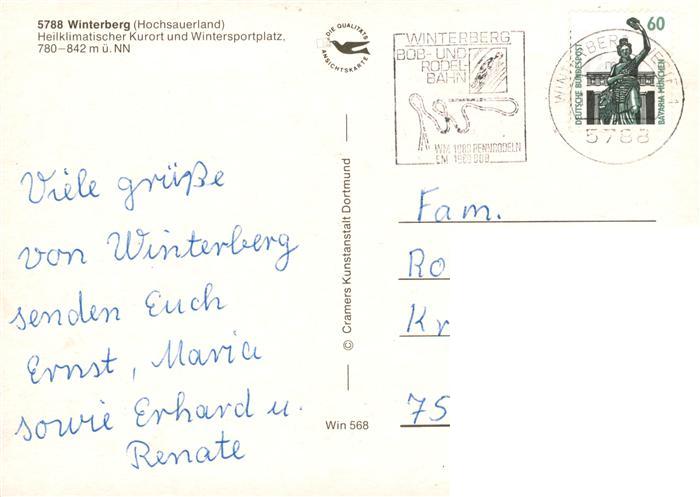 5788 Winterberg (Hochsauerland)
Heilklimatischer Kurort und Wintersportplatz,
780–842 m ü. NN
DIE QUALITÄTS
ANSICHTSKARTE
WINTERBERG
BOB- UND
RODEL-
BAHN
WM 1989 RENNRODELN
EM 1989 BOB
60
DEUTSCHE BUNDESPOST
BAYARIA MÜNCHEN
WINTERBERG
5788
Viele grüße
von Winterberg
senden Euch
Ernst, Maria
sowie Erhard u.
Renate
© Cramers Kunstanstalt Dortmund
Win 568
Fam.
Ro
Kr
75